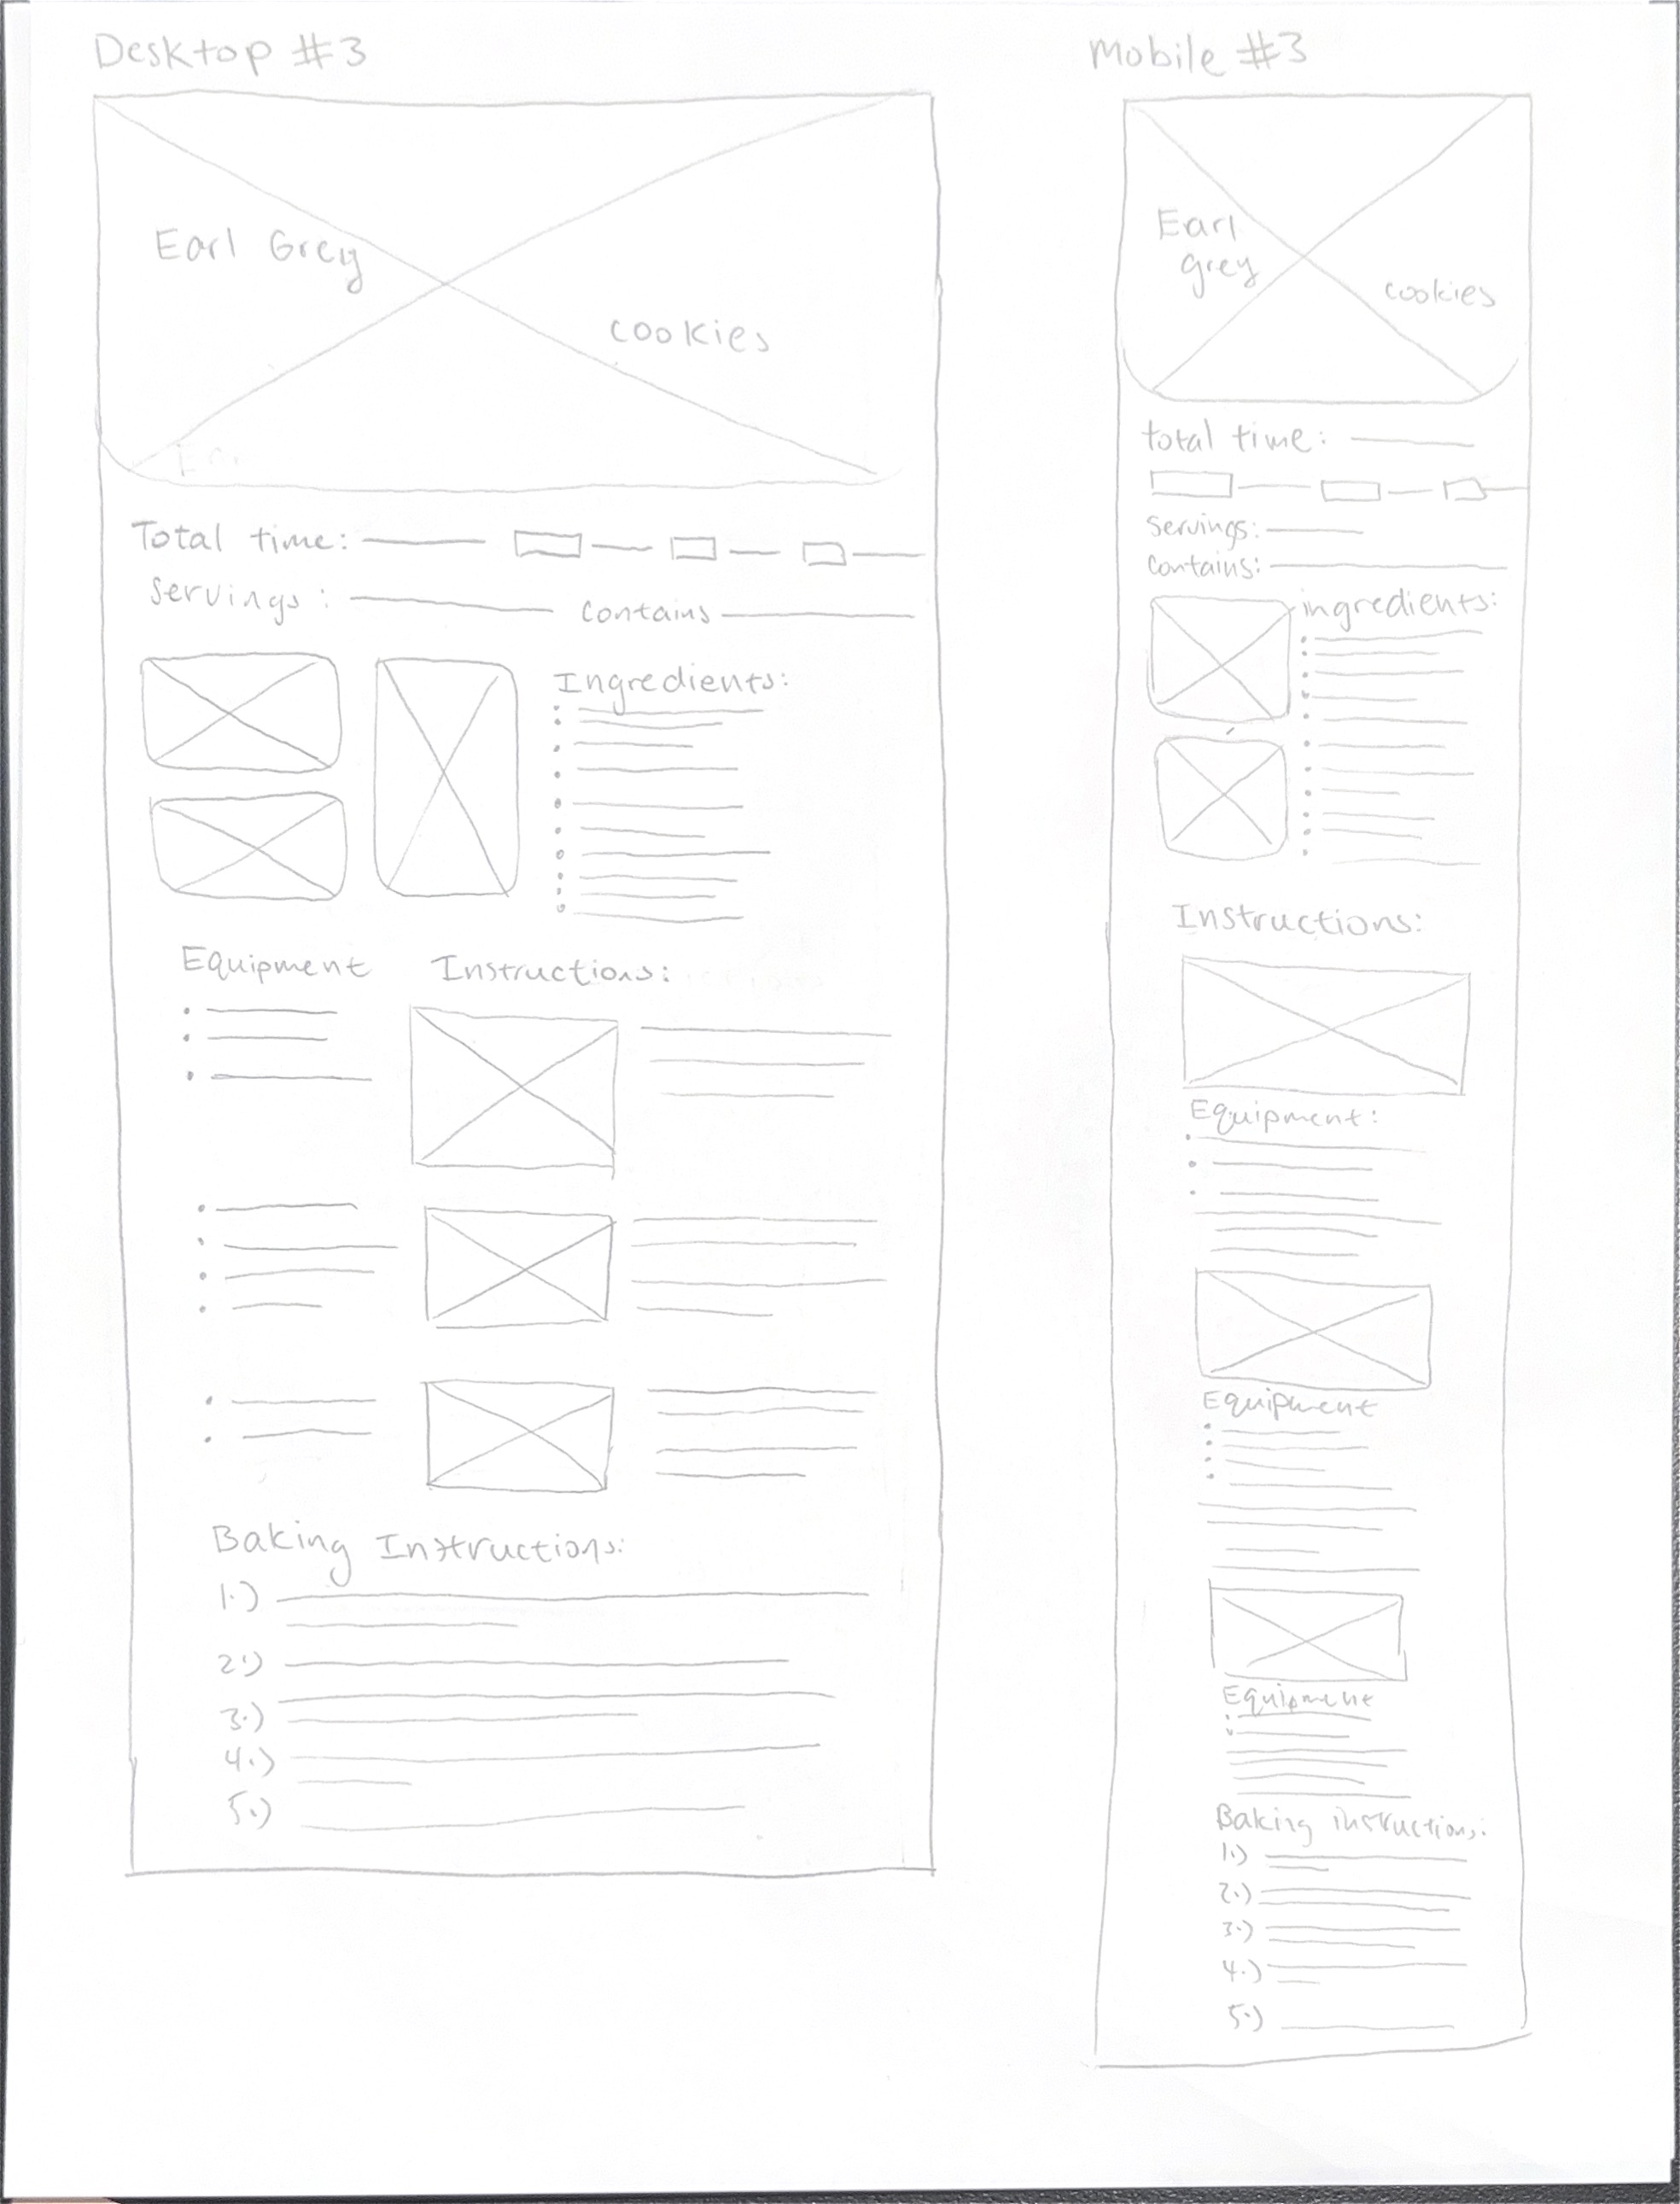 Desktop #3
Earl Grey
cookies
Total time:
Servings:
Contains
Ingredients:
Equipment
Instructions:
Baking Instructions:
1.)
2.)
3.)
4.)
5.)
Mobile #3
Earl
grey
cookies
total time:
Servings:
Contains:
ingredients:
Instructions:
Equipment:
Equipment
Equipment
Baking instructions:
1.)
2.)
3.)
4.)
5.)